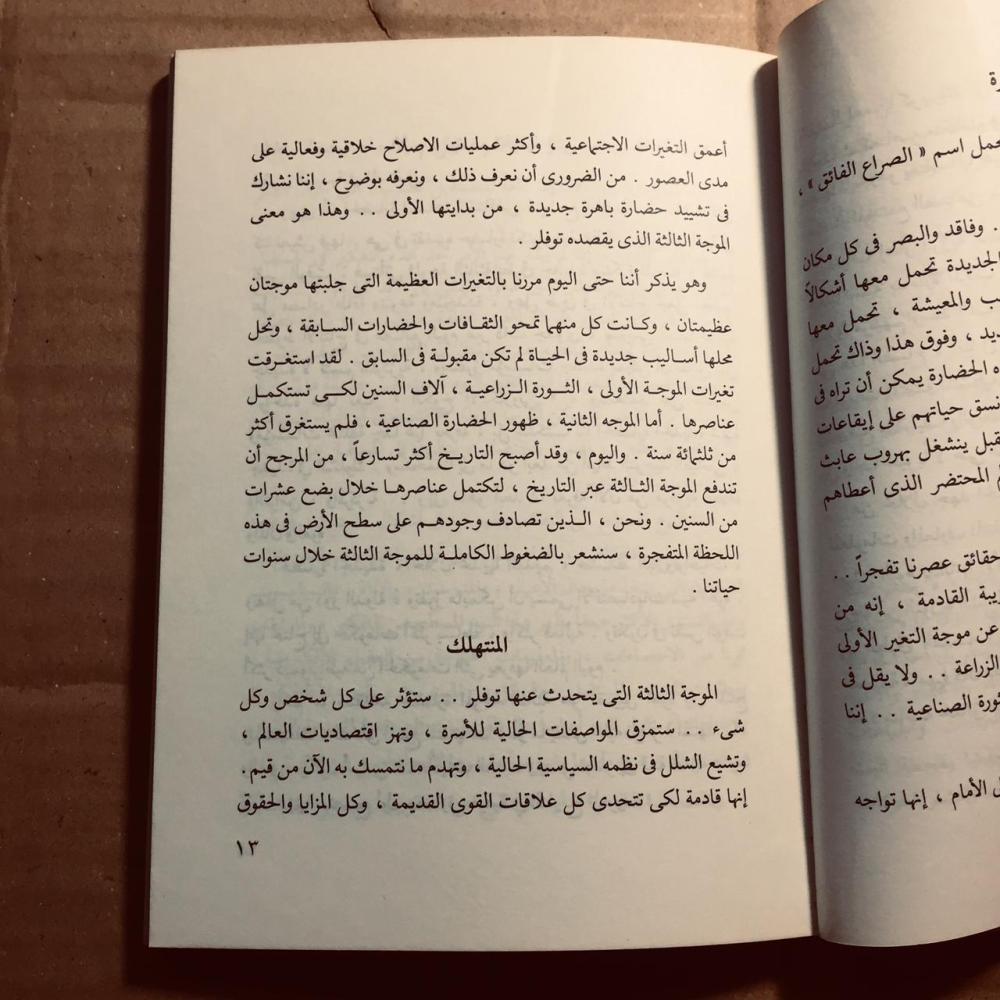 رة
حمل اسم « الصراع الفائق » ،
. وفاقد والبصر فى كل مكان
الجديدة تحمل معها أشكالاً
ب والمعيشة ، تحمل معها
ديد ، وفوق هذا وذاك تحمل
ه الحضارة يمكن أن تراه فى
نسق حياتهم على إيقاعات
قبل ينشغل بهروب عابث
م المحتضر الذى أعطاهم
حقائق عصرنا تفجراً . .
ريبة القادمة ، إنه من
عن موجة التغير الأولى
الزراعة . . ولا يقل فى
ثورة الصناعية . . إننا
ل الأمام ، إنها تواجه
أعمق التغيرات الاجتماعية ، وأكثر عمليات الاصلاح خلاقية وفعالية على
مدى العصور . من الضرورى أن نعرف ذلك ، ونعرفه بوضوح ، إننا نشارك
فى تشييد حضارة باهرة جديدة ، من بدايتها الأولى . . وهذا هو معنى
الموجة الثالثة الذى يقصده توفلر .
وهو يذكر أننا حتى اليوم مررنا بالتغيرات العظيمة التى جلبتها موجتان
عظيمتان ، وكانت كل منهما تمحو الثقافات والحضارات السابقة ، وتحل
محلها أساليب جديدة فى الحياة لم تكن مقبولة فى السابق . لقد استغرقت
تغيرات الموجة الأولى ، الثورة الزراعية ، آلاف السنين لكى تستكمل
عناصرها . أما الموجه الثانية ، ظهور الحضارة الصناعية ، فلم يستغرق أكثر
من ثلثمائة سنة . واليوم ، وقد أصبح التاريخ أكثر تسارعاً ، من المرجح أن
تندفع الموجة الثالثة عبر التاريخ ، لتكتمل عناصرها خلال بضع عشرات
من السنين . ونحن ، الذين تصادف وجودهم على سطح الأرض فى هذه
اللحظة المتفجرة ، سنشعر بالضغوط الكاملة للموجة الثالثة خلال سنوات
حياتنا .
المنتهلك
الموجة الثالثة التى يتحدث عنها توفلر . . ستؤثر على كل شخص وكل
شىء . . ستمزق المواصفات الحالية للأسرة ، وتهز اقتصاديات العالم ،
وتشيع الشلل فى نظمه السياسية الحالية ، وتهدم ما نتمسك به الآن من قيم .
إنها قادمة لكى تتحدى كل علاقات القوى القديمة ، وكل المزايا والحقوق
١٣